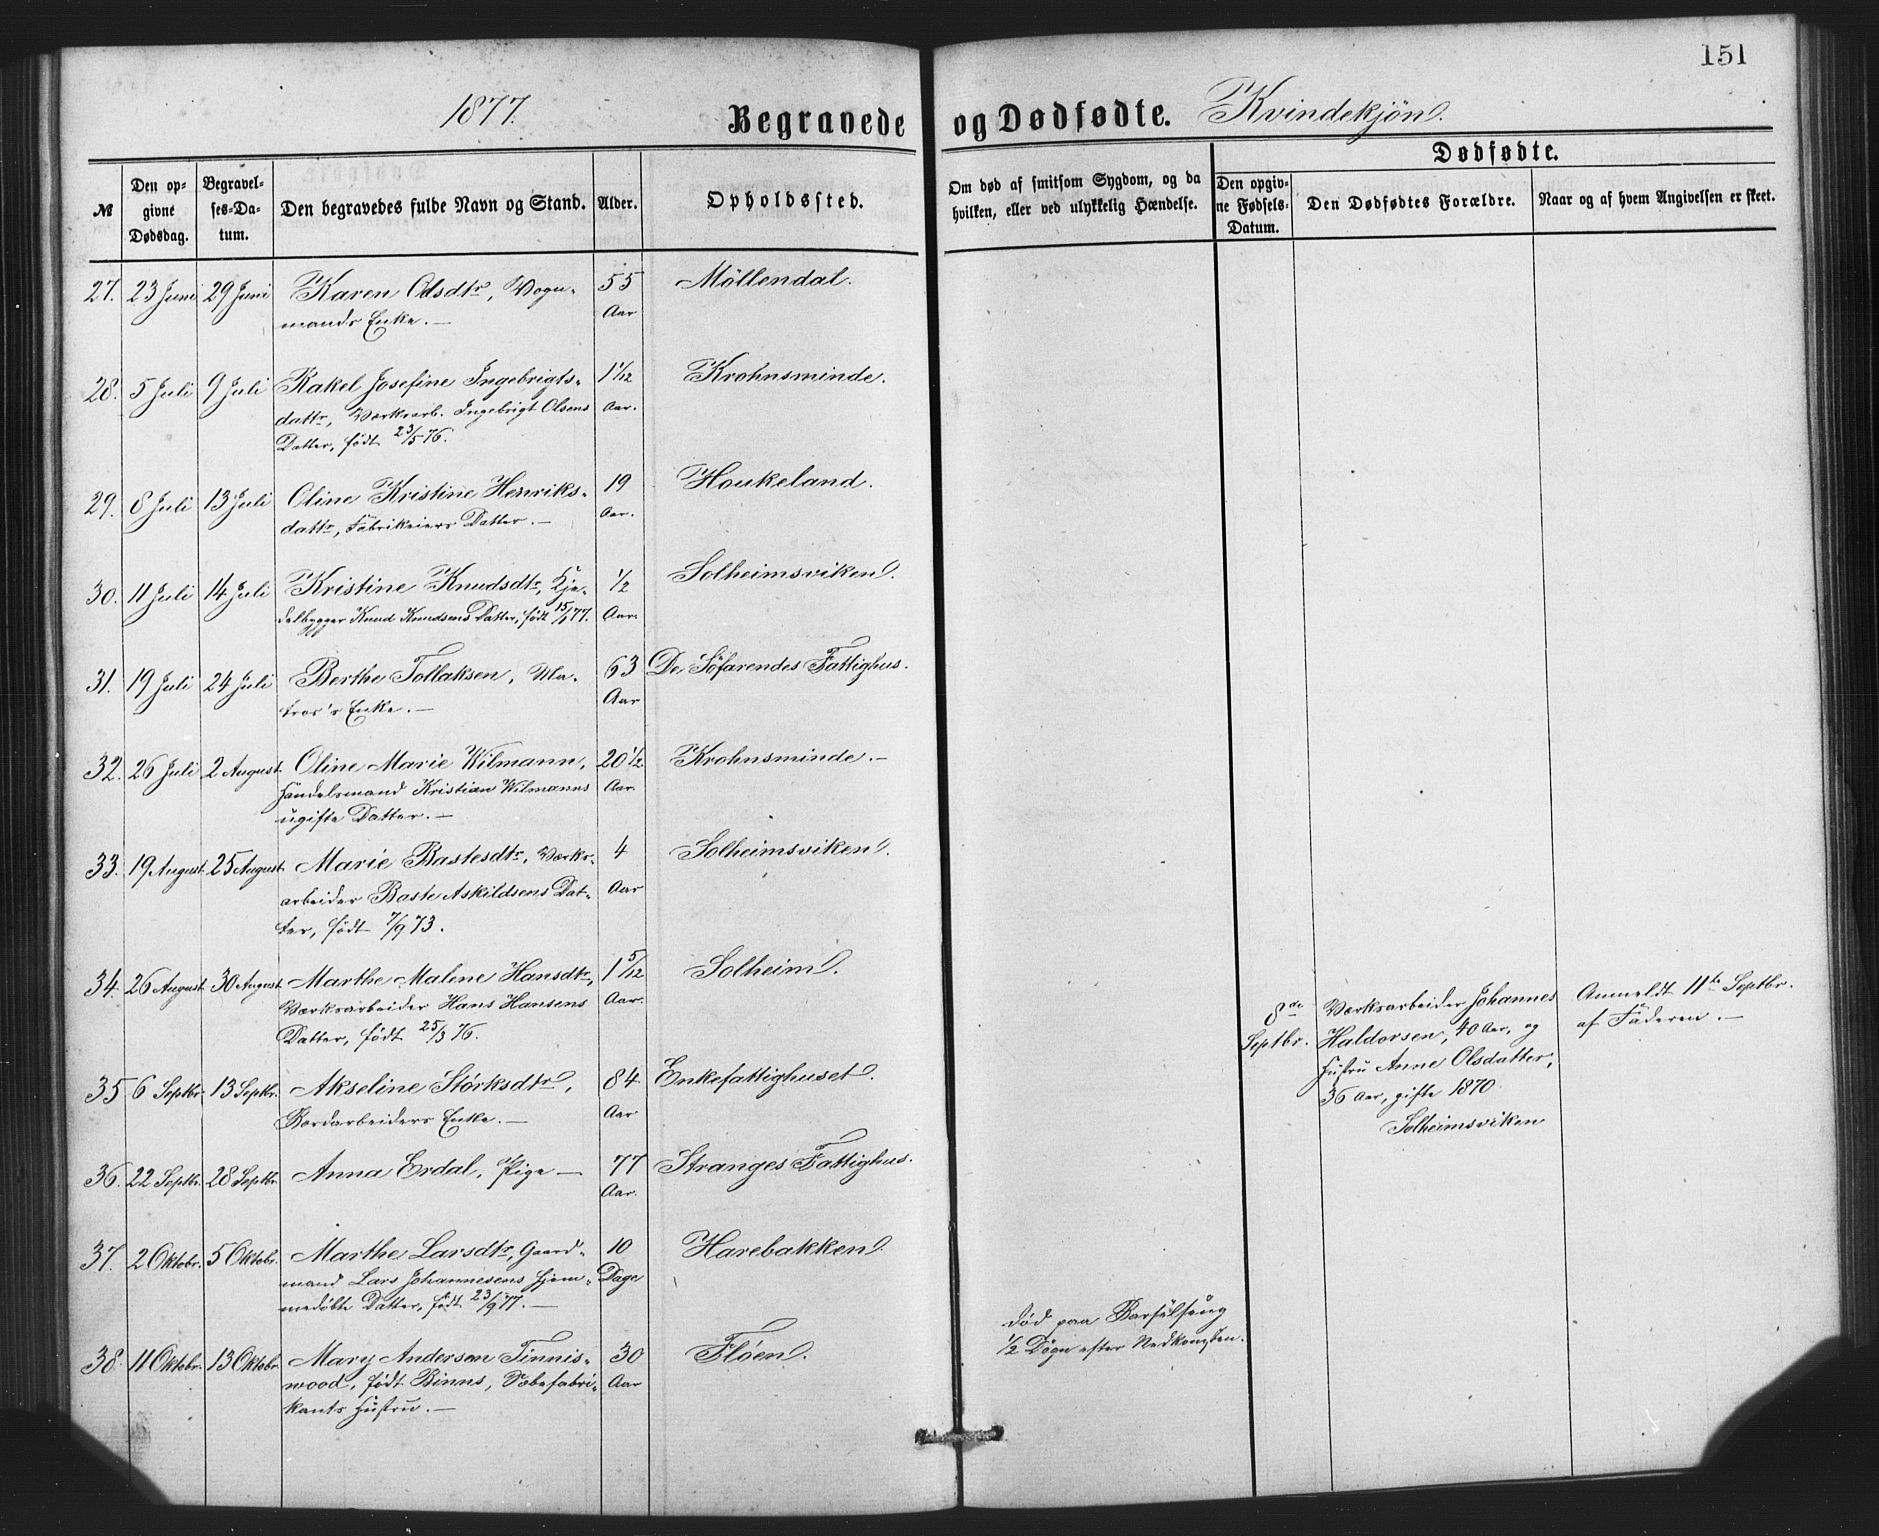 151
1877.
Begravede og Dødfødte. Kvindekjøn.
№
Den op-
givne
Dødsdag.
Begravel-
ses-Da-
tum.
Den begravedes fulde Navn og Stand.
Alder.
Opholdssted.
Om død af smitsom Sygdom, og da
hvilken, eller ved ulykkelig Hændelse.
Dødfødte.
Den opgiv-
ne Fødsels-
Datum.
Den Dødfødtes Forældre.
Naar og af hvem Angivelsen er skeet.
27. 23 Juni 29 Juni Karen Olsdtr, Vogn- 55 Möllendal.
mands Enke. — Aar
28. 5 Juli 9 Juli Rakel Josefine Ingebrigts- 1 1/12 Krohnsminde.
dattr, Værksarb. Ingebrigt Olsens Aar.
Datter, født 23/5 76.
29. 8 Juli 13 Juli Oline Kristine Henriks- 19 Houkeland.
dattr, Fabrikeiers Datter. — Aar.
30. 11 Juli 14 Juli Kristine Knudsdtr, Kje- 1/2 Solheimsviken.
delbygger Knud Knudsens Datter, født 15/1 77. Aar.
31. 19 Juli 24 Juli Berthe Tollaksen, Ma- 63 De Söfarendes Fattighus.
tros's Enke. — Aar
32. 26 Juli 2 August Oline Marie Wilmann, 20 1/2 Krohnsminde. —
Handelsmand Kristian Wilmanns Aar.
ugifte Datter. —
33. 19 August 25 August Marie Bastesdtr, Værks- 4 Solheimsviken.
arbeider Baste Askildsens Dat- Aar
ter, født 7/9 73.
34. 26 August 30 August Marthe Malene Hansdtr, 1 5/12 Solheim.
Værksarbeider Hans Hansens Aar.
Datter, født 25/3 76.
8de Værksarbeider Johannes Anmeldt 11te Septbr.
Septbr. Haldorsen, 40 Aar, og af Faderen. —
Hustru Anne Olsdatter,
36 Aar, gifte 1870
Solheimsviken
35 6 Septbr. 13 Septbr. Akseline Störksdtr, 84 Enkefattighuset.
Bordarbeiders Enke. — Aar
36. 22 Septbr. 28 Septbr. Anna Erdal, Pige — 77 Stranges Fattighus.
Aar.
37. 2 Oktobr. 5 Oktobr. Marthe Larsdtr, Gaard- 10 Harebakken.
mand Lars Johannesens hjem- Dage
medøbte Datter, født 23/9 77. —
38. 11 Oktobr. 13 Oktobr. Mary Anderson Tinnis- 30 Flöen. Død paa Barselseng
wood, født Binns, Sæbefabri- Aar 1/2 Døgn efter Nedkomsten.
kants Hustru. —